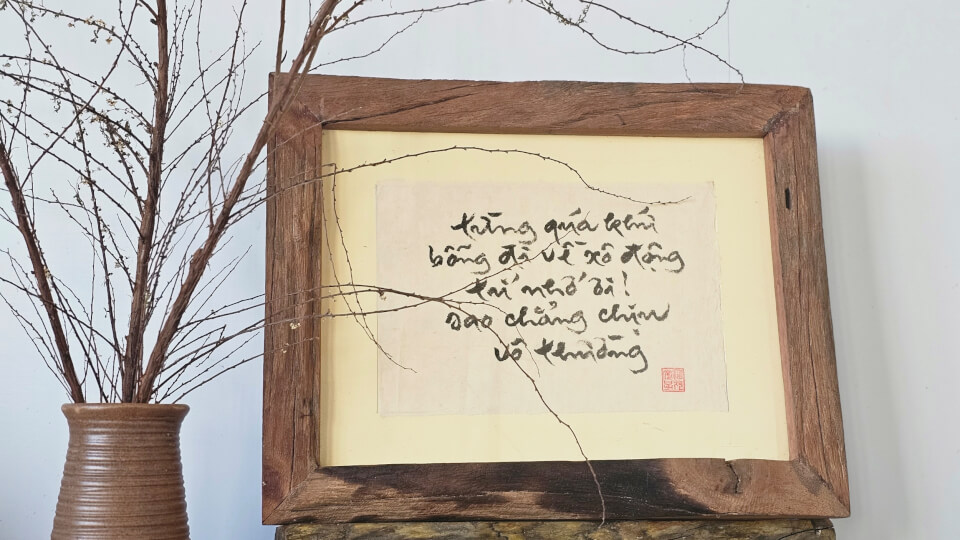 từng quá khứ
bỗng đi về xô động
trí nhớ ôi!
sao chẳng chịu
vô thường